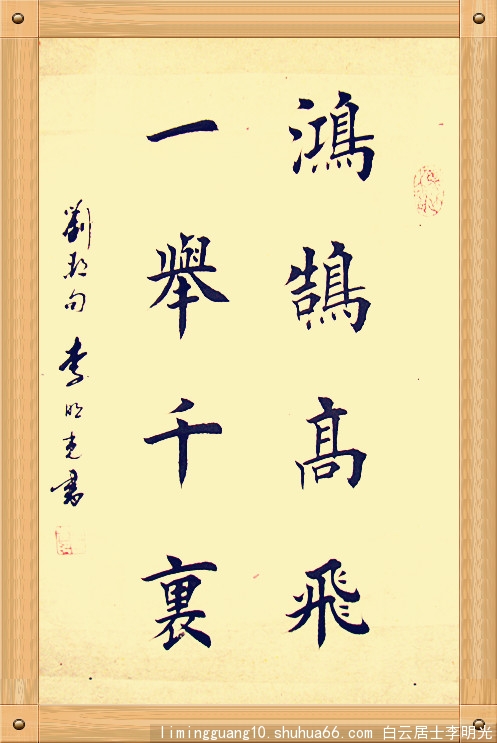 鴻鵠高飛
一舉千裏
劉邦句 李明光書
limingguang10.shuhua66.com 白云居士李明光